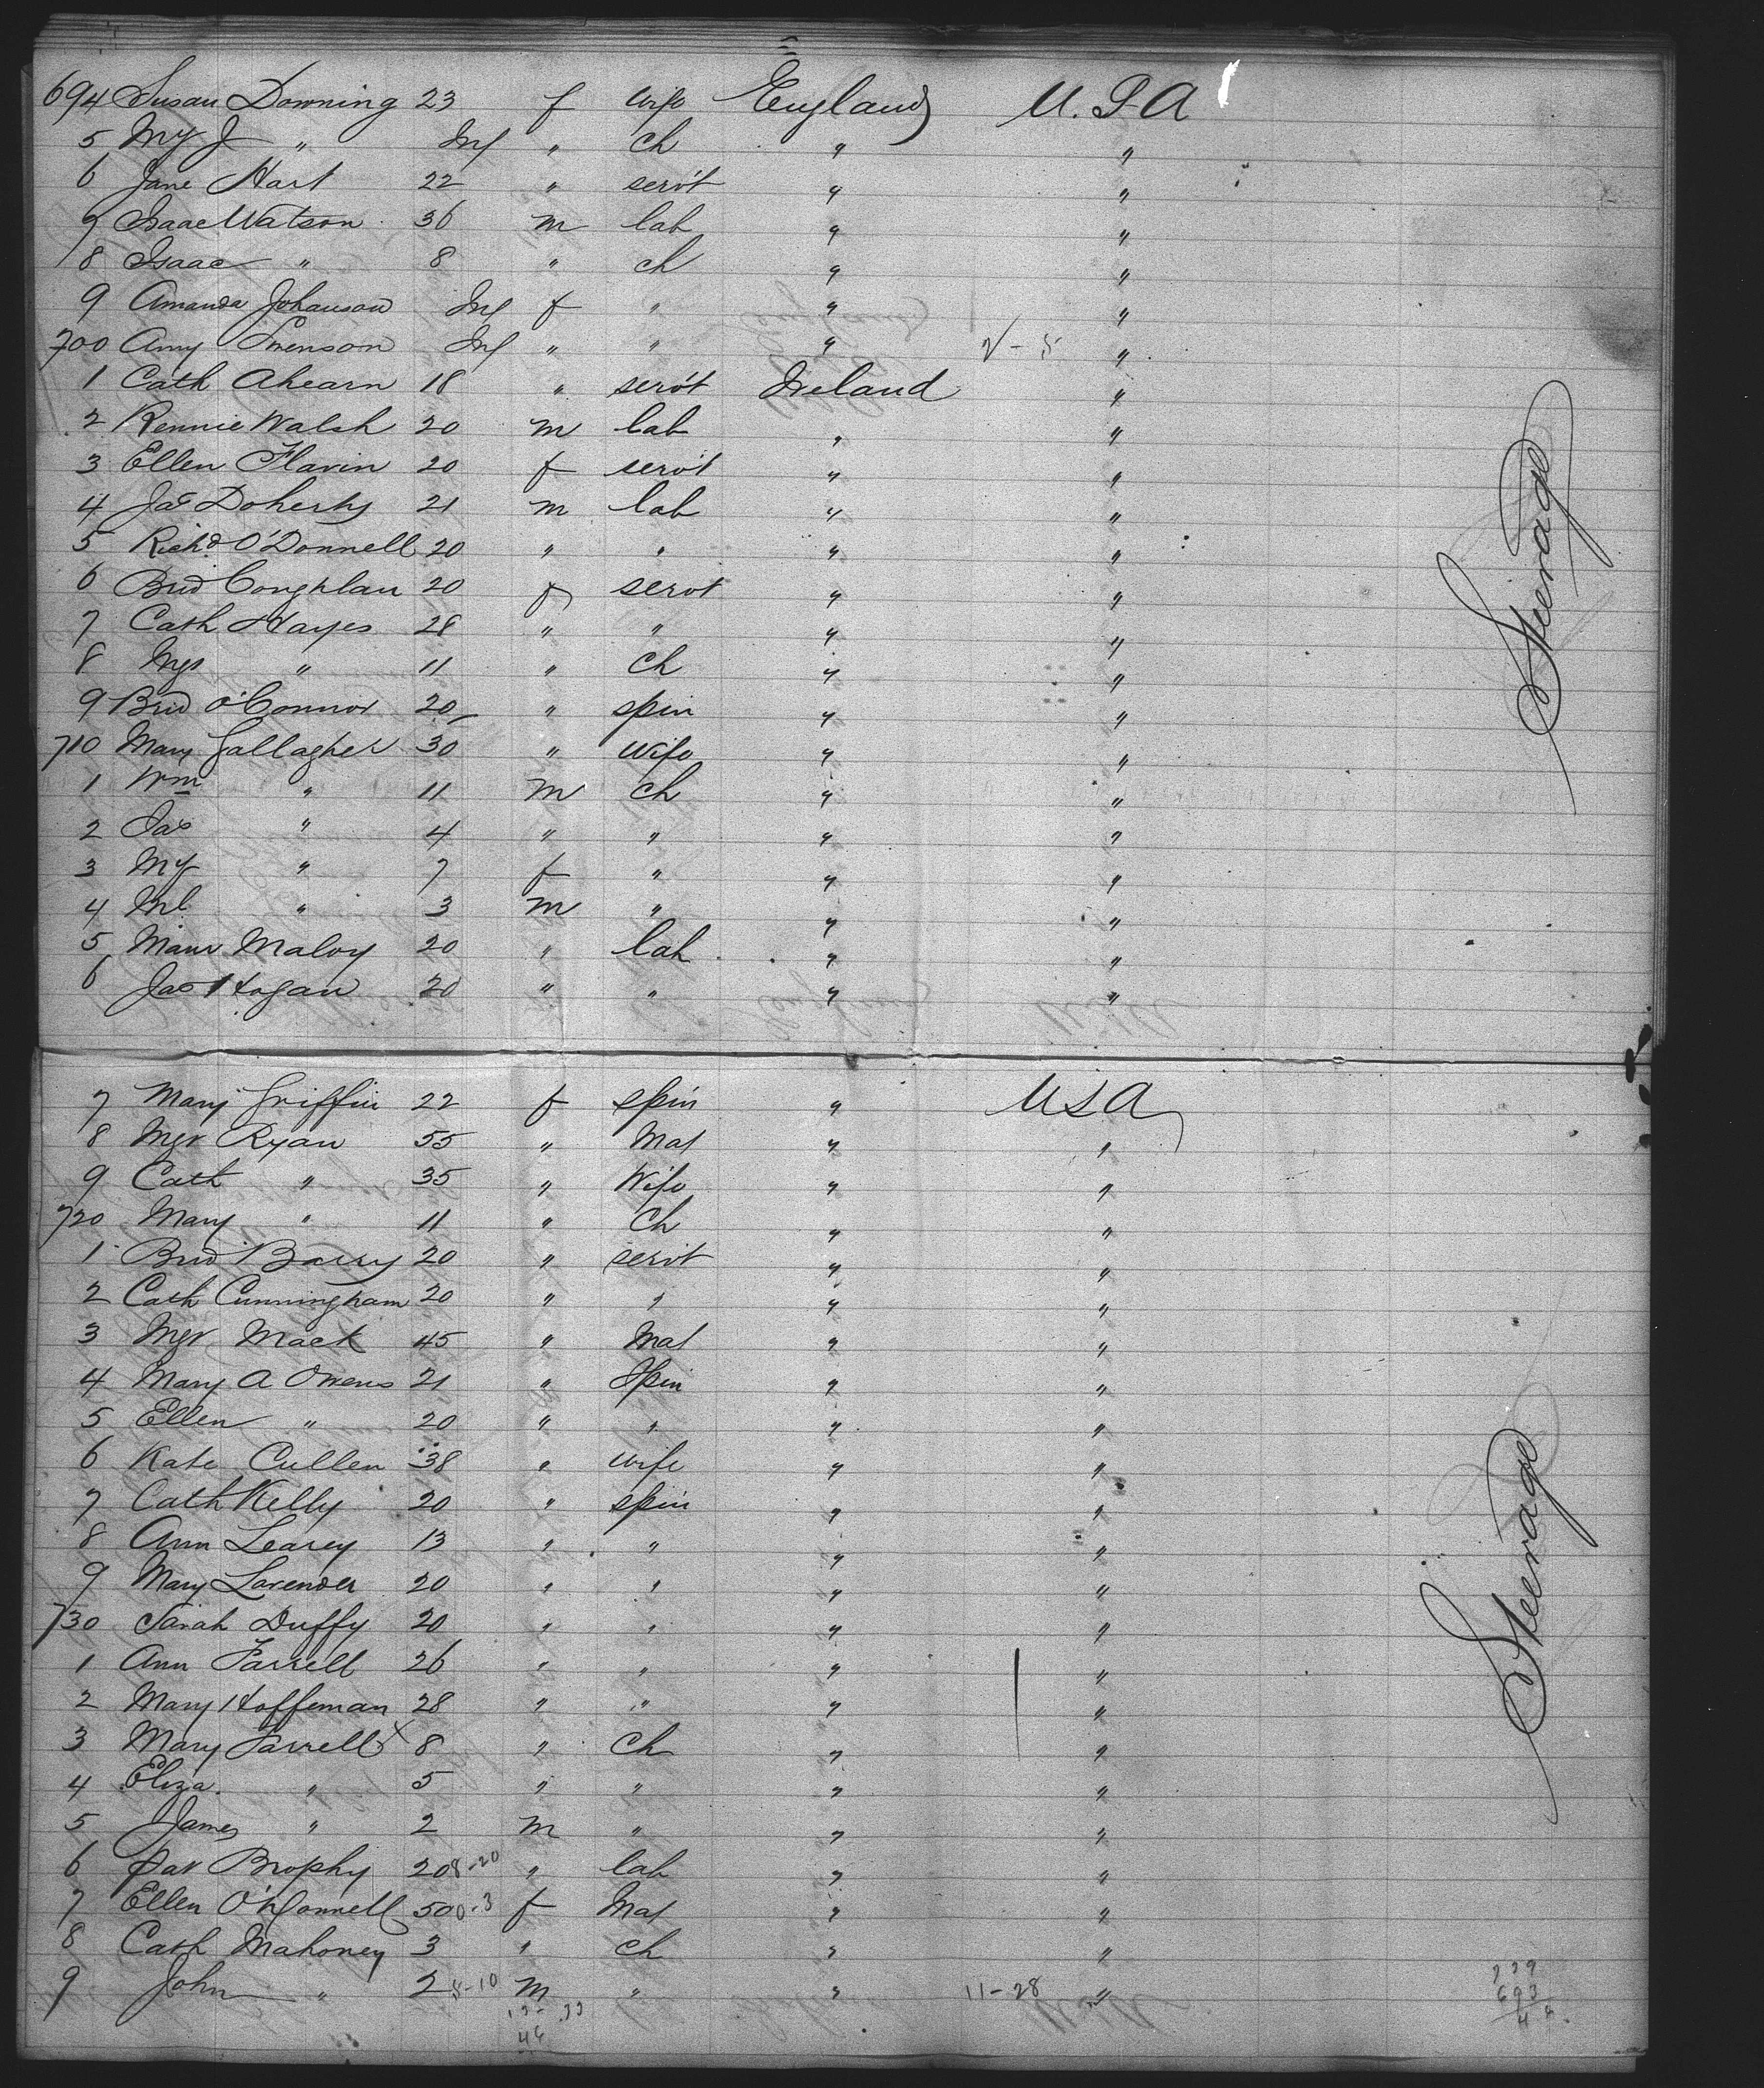 694 Susan Downing 23 f wife England U.S.A
5 My J " Inf " ch " "
6 Jane Hart 22 " servt " "
7 Isaac Watson 36 m lab " "
8 Isaac " 8 " ch " "
9 Amanda Johanson Inf f " " "
700 Amy Swenson Inf " " " "
1 Cath Ahearn 18 " servt Ireland "
2 Rennie Walsh 20 m lab " "
3 Ellen Flavin 20 f servt " "
4 Jas Doherty 21 m lab " "
5 Richd O'Donnell 20 " " " "
6 Brid Coughlan 20 f servt " "
7 Cath Hayes 28 " " " "
8 " 11 " ch " "
9 Brid O'Connor 20 " spin " "
710 Mary Gallagher 30 " wife " "
1 Wm " 11 m ch " "
2 Jas " 4 " " " "
3 My " 7 f " " "
4 Ml " 3 m " " "
5 Maur Maloy 20 " lab " "
6 Jas Hogan 20 " " " "
Steerage
7 Mary Griffin 22 f spin " USA
8 Mgr Ryan 55 " Mat " "
9 Cath " 35 " Wife " "
720 Mary " 11 " Ch " "
1 Brid Barry 20 " servt " "
2 Cath Cunningham 20 " " " "
3 Mgr Mack 45 " Mat " "
4 Mary A Owens 21 " Spin " "
5 Ellen " 20 " " " "
6 Kate Cullen 38 " wife " "
7 Cath Kelly 20 " spin " "
8 Ann Learey 13 " " " "
9 Mary Lavender 20 " " " "
730 Sarah Duffy 20 " " " "
1 Ann Farrell 26 " " " "
2 Mary Hoffeman 28 " " " "
3 Mary Farrell x 8 " Ch " "
4 Eliza " 5 " " " "
5 James " 2 m " " "
6 Pat Brophy 20 8-20 " lab " "
7 Ellen O'Donnell 50 0-3 f Mat " "
8 Cath Mahoney 3 " ch " "
9 John " 2 8-10 m " " 11-28 "
Steerage
739
693
46